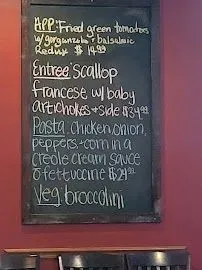 APP: Fried green tomatoes
w/ gorgonzola + balsamic
Redux $ 14.99
Entree: Scallop
francese w/ baby
artichokes + side $34.99
Pasta: chicken, onion,
peppers, + corn in a
creole cream sauce
o fettuccine $29.99
Veg: broccolini